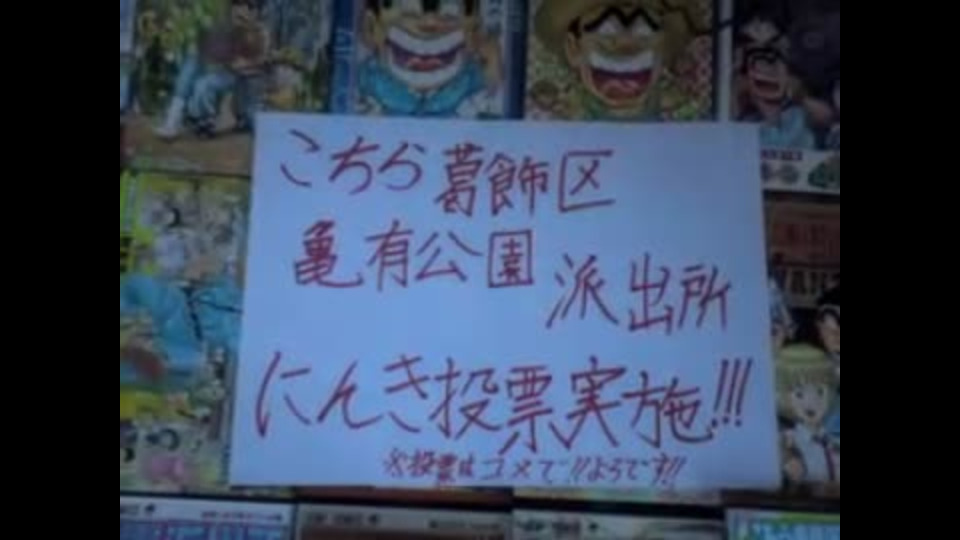 こちら葛飾区
亀有公園
派出所
にんき投票実施!!!
※投票はコメで!!ようです!!